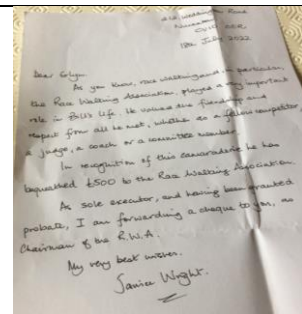 Nuneaton
CV10
18th July 2022
Dear Glyn,
As you know, race walking and, in particular,
the Race Walking Association, played a very important
role in Bill's life. He valued the friendship and
respect from all he met, whether as a fellow competitor,
a judge, a coach or a committee member.
In recognition of this camaraderie he has
bequeathed £500 to the Race Walking Association.
As sole executor, and having been granted
probate, I am forwarding a cheque to you, as
Chairman of the R.W.A.
My very best wishes.
Janice Wright.